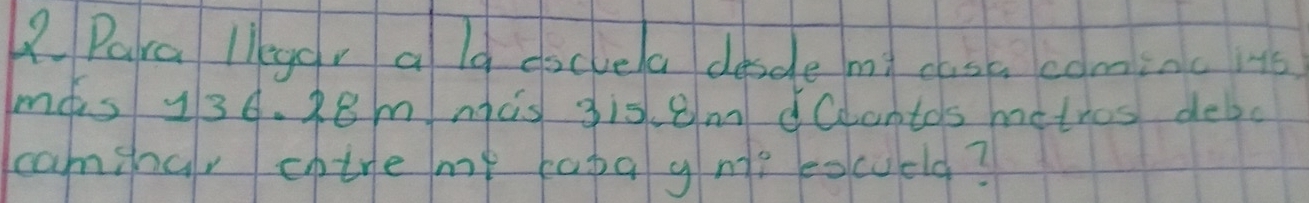 2. Para llegar a la escuela desde mi casa camino
más 136.28m más 315.8m ¿Cuantos metros debo
caminar entre mi casa y mi escuela?